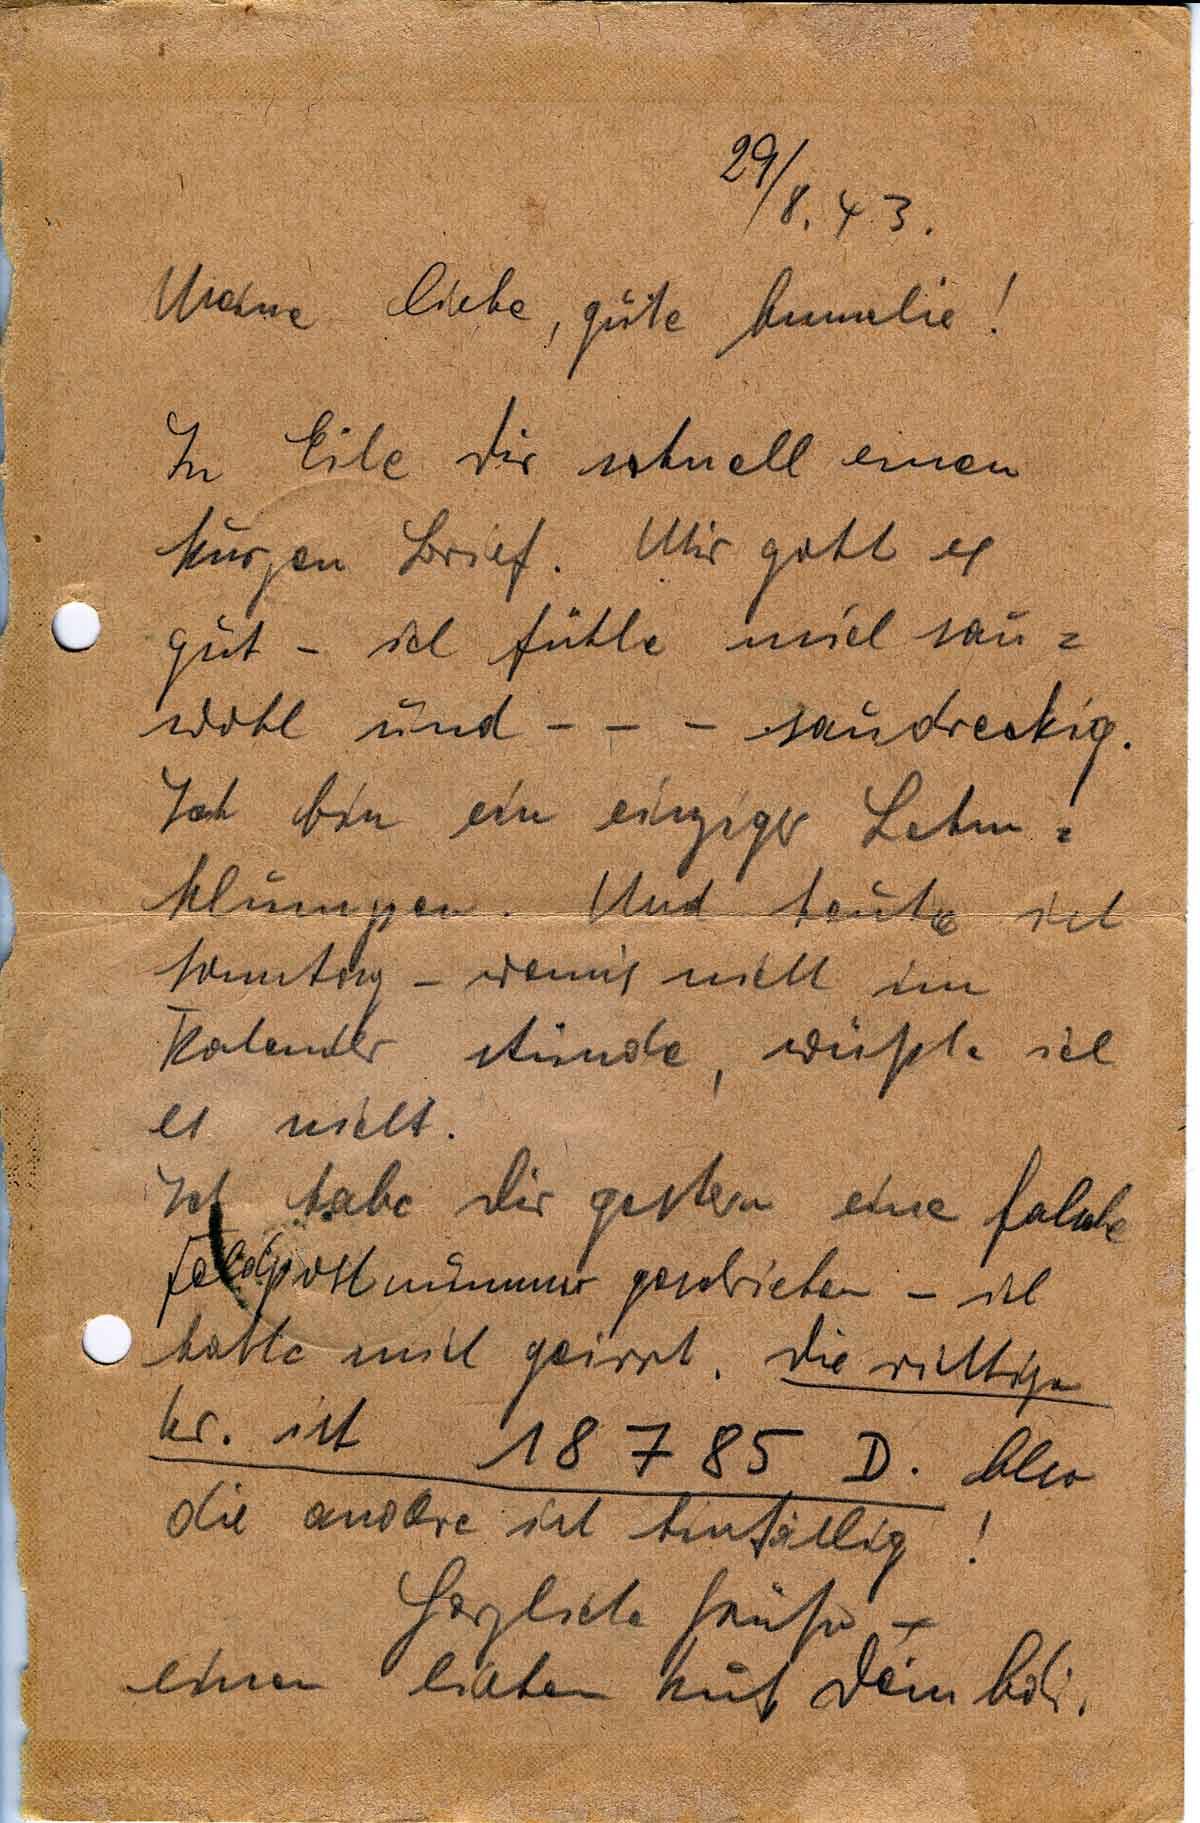 29/8.43.
Meine liebe, gute Annelie!
In Eile Dir schnell einen
kurzen Brief. Mir geht es
gut - ich fühle mich sau=
wohl und - - - saudreckig.
Ich bin ein einziger Lehm=
klumpen. Und heute ist
Sonntag - wenns nicht im
Kalender stünde, wüßte ich
es nicht.
Ich habe Dir gestern eine falsche
Feldpostnummer geschrieben - ich
hatte mich geirrt. Die richtige
Nr. ist 18785 D. Also
die andere ist hinfällig!
Herzliche Grüße -
einen lieben Kuß Dein